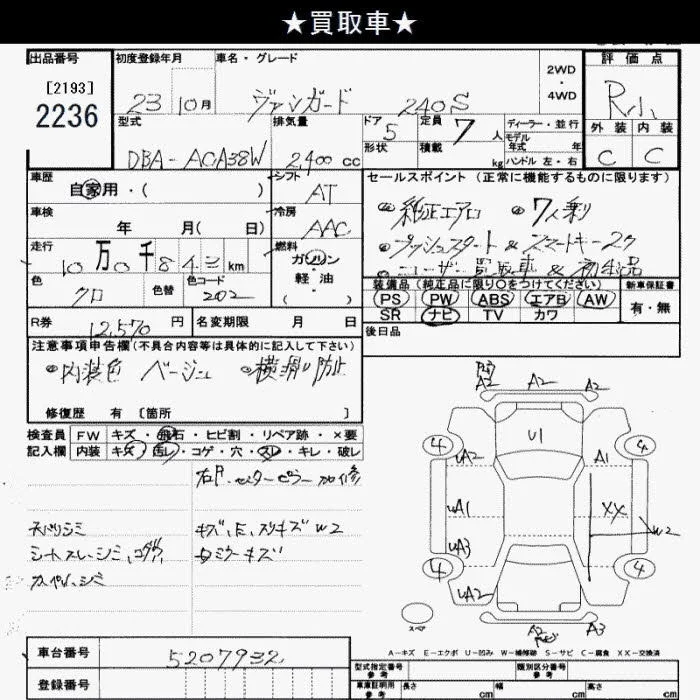 ★買取車★
出品番号 初度登録年月 車名・グレード 2WD・4WD 評価点
[2193]
2236
23 10月 ヴァンガード 240S R小
型式 排気量 ドア 定員 ディーラー・並行 外装 内装
5 7人 モデル年式 年
形状 積載 kg ハンドル 左・右
DBA-ACA38W 2,400cc C C
車歴 自家用・( ) シフト AT
セールスポイント (正常に機能するものに限ります)
車検 年 月( 日) 冷房 AAC
純正エアロ 7人乗り
走行 10万0千843km 燃料 ガソリン・軽油・( )
プッシュスタート&スマートキー2ケ
ユーザー買取車&初出品
色 クロ 色替 色コード 202
装備品 (純正品に限り○をつけてください) 新車保証書
PS PW ABS エアB AW 有・無
SR ナビ TV カワ
R券 12,570円 名変期限 月 日
後日品
注意事項申告欄(不具合内容等は具体的に記入して下さい)
内装色 ベージュ 横滑り防止
修復歴 有 〔箇所 〕
検査員 FW キズ・飛石・ヒビ割・リペア跡・×要
記入欄 内装 キズ・汚レ・コゲ・穴・スレ・キレ・破レ
右F、センターピラー 加修
キズ、E、スリキズ W2
シートスレ、シミ、コゲ穴
ミラーキズ
A2 A2 A2
U1
4 4
UA2 A1
UA1 XX
W2
UA3
4 4
UA2
A2 A3
スペア
A-キズ E-エクボ U-凹み W-補修跡 S-サビ C-腐食 XX-交換済
車台番号 5207932
型式指定番号 参考 類別区分番号 参考
登録番号
車庫証明用 参考 長さ cm 幅 cm 高さ cm